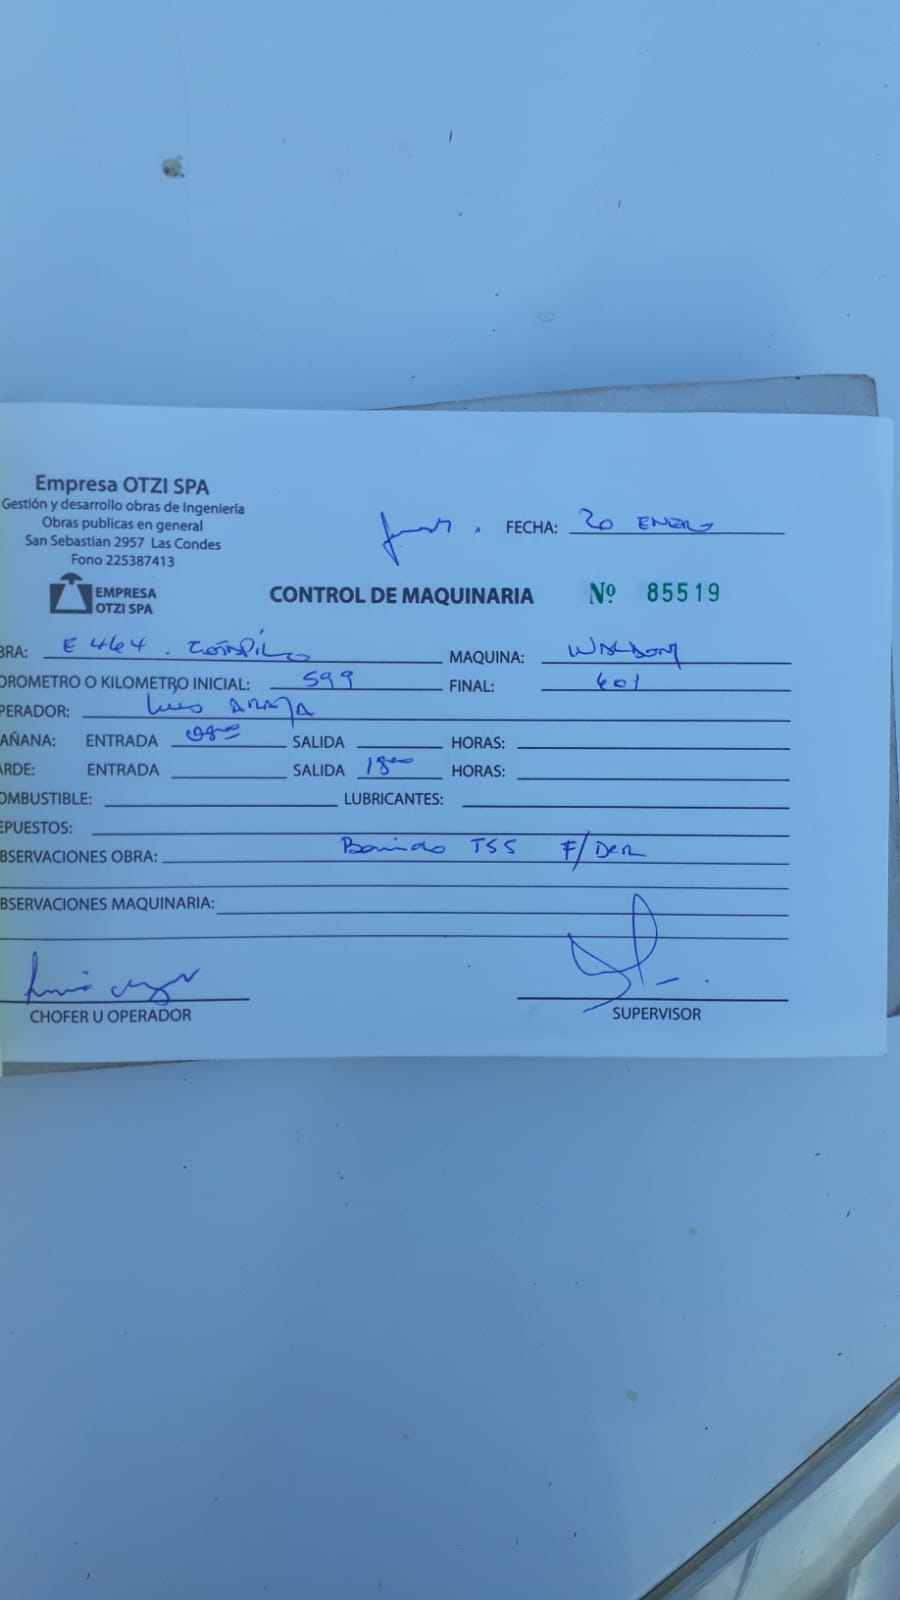 Empresa OTZI SPA
Gestión y desarrollo obras de Ingeniería
Obras publicas en general
San Sebastian 2957 Las Condes
Fono 225387413
FECHA: 20 ENERO
EMPRESA
OTZI SPA
CONTROL DE MAQUINARIA Nº 85519
BRA: E 464 . MAQUINA: WALDON
OROMETRO O KILOMETRO INICIAL: 599 FINAL: 601
PERADOR: Luis ARAYA
AÑANA: ENTRADA 0800 SALIDA HORAS:
ARDE: ENTRADA SALIDA 1800 HORAS:
OMBUSTIBLE: LUBRICANTES:
EPUESTOS:
BSERVACIONES OBRA: Barrido TSS F/DER
BSERVACIONES MAQUINARIA:
CHOFER U OPERADOR SUPERVISOR